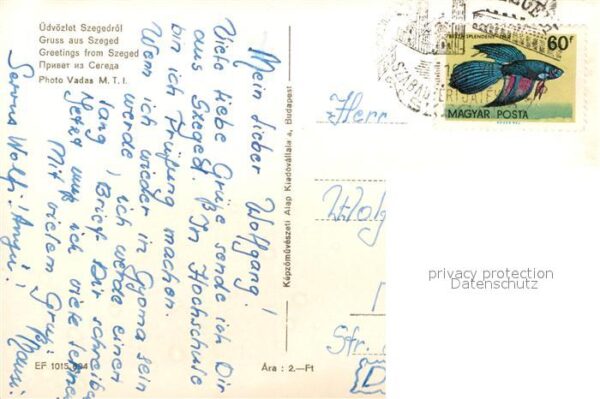 Üdvözlet Szegedről
Gruss aus Szeged
Greetings from Szeged
Привет из Сегеда
Photo Vadas M. T. I.
Mein lieber Wolfgang!
Viele liebe Grüße sende ich Dir
aus Szeged. In Hochschule
bin ich Prüfung machen.
Wenn ich wieder in Gyoma sein
werde, ich werde einen
lang Brief Dir schreiben
Jetzt muß ich viele lernen
Mit vielem Gruß:
Servus Wolfi!
EF 1015
Képzőművészeti Alap Kiadóvállalata 4, Budapest
Ára : 2.—Ft
Herr
Wolf
Str.
D
60f
MAGYAR POSTA
SZABADTÉRI JÁTÉKOK
privacy protection
Datenschutz